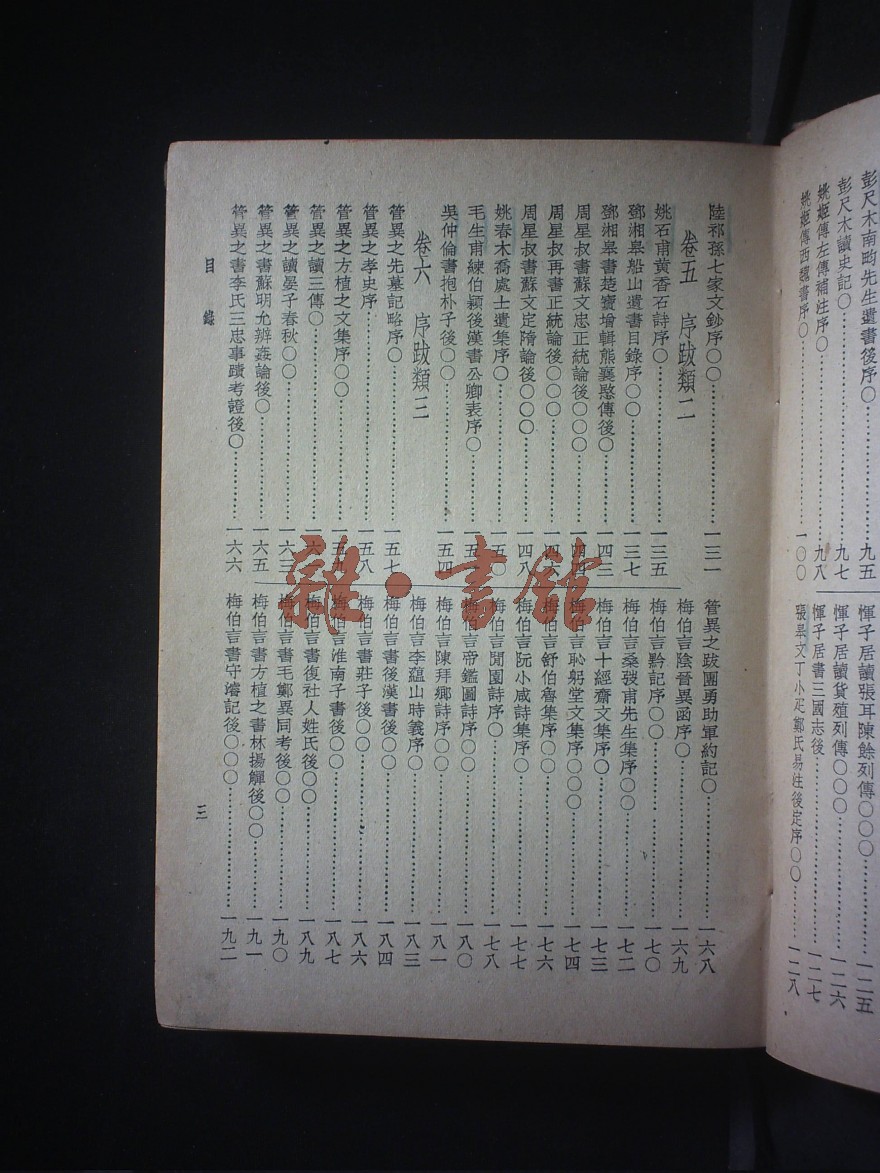 彭尺木南畇先生遺書後序〇…………九五
彭尺木讀史記〇…………九七
姚姬傳左傳補注序〇…………九八
姚姬傳西魏書序〇〇…………一〇〇
惲子居讀張耳陳餘列傳〇〇〇…………一二五
惲子居讀貨殖列傳〇〇〇…………一二六
惲子居書三國志後…………一二七
張皋文丁小疋鄭氏易注後定序〇〇…………一二八
陸祁孫七家文鈔序〇〇…………一三一
卷五　序跋類二
姚石甫黃香石詩序〇…………一三五
鄧湘皋船山遺書目錄序〇〇…………一三七
鄧湘皋書楚寶增輯熊襄愍傳後〇…………一四三
周星叔書蘇文忠正統論後〇〇〇…………一四四
周星叔再書正統論後〇〇〇…………一四六
周星叔書蘇文定隋論後〇〇〇…………一四八
姚春木喬處士遺集序〇…………一五〇
毛生甫練伯穎後漢書公卿表序〇…………一五一
吳仲倫書抱朴子後〇〇…………一五四
卷六　序跋類三
管異之先墓記略序〇…………一五七
管異之孝史序〇…………一五八
管異之方植之文集序〇〇…………一五九
管異之讀三傳〇…………一六一
管異之讀晏子春秋〇〇…………一六三
管異之書蘇明允辨姦論後〇…………一六五
管異之書李氏三忠事蹟考證後〇…………一六六
管異之跋團勇助軍約記〇…………一六八
梅伯言陰晉異函序〇…………一六九
梅伯言黔記序〇〇…………一七〇
梅伯言桑弢甫先生集序〇〇…………一七二
梅伯言十經齋文集序〇…………一七三
梅伯言恥躬堂文集序〇〇〇…………一七四
梅伯言舒伯魯集序〇〇…………一七六
梅伯言阮小咸詩集序〇…………一七七
梅伯言閒園詩序〇…………一七八
梅伯言帝鑑圖詩序〇…………一八〇
梅伯言陳拜鄉詩序〇〇…………一八一
梅伯言李蘊山時義序〇…………一八三
梅伯言書後漢書〇〇…………一八四
梅伯言書莊子後〇〇…………一八六
梅伯言淮南子書後〇〇…………一八七
梅伯言書復社人姓氏後〇〇…………一八九
梅伯言書毛鄭異同考後〇〇…………一九〇
梅伯言書方植之書林揚觶後〇〇…………一九一
梅伯言書守濬記後〇〇〇…………一九二
目錄
三
雜·書館